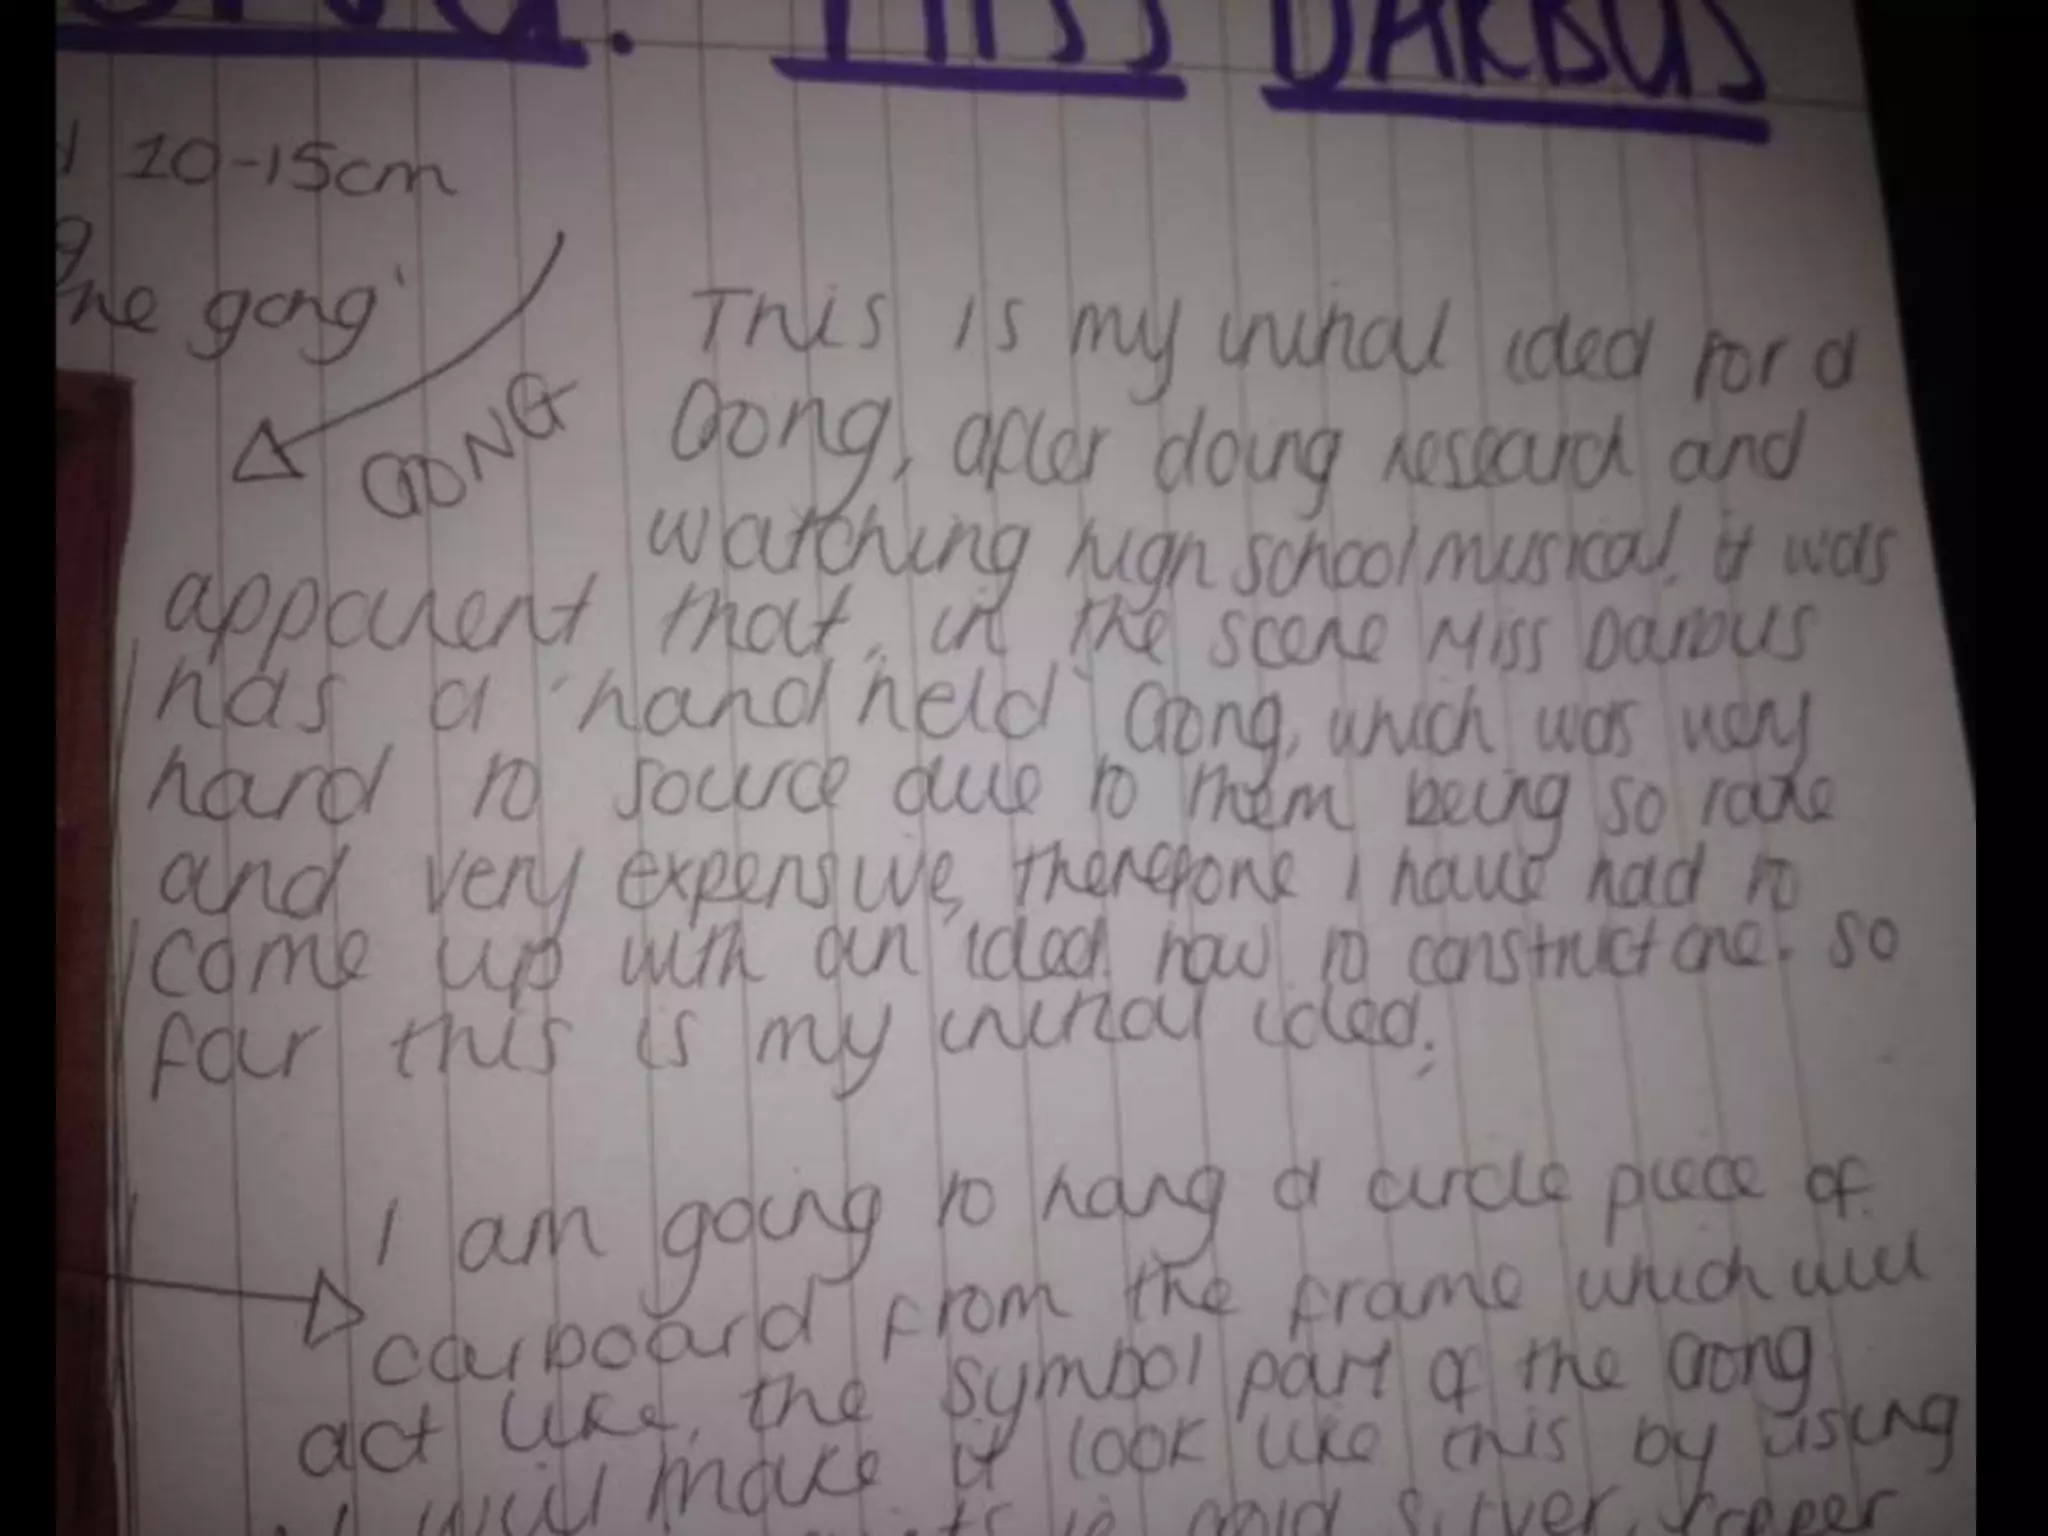 GONG: MISS DARBUS
10-15cm
the gong'
GONG
This is my initial idea for a
Gong, after doing research and
watching high school musical, it was
apparent that, in the scene Miss Darbus
has a 'hand held' Gong, which was very
hard to source due to them being so rare
and very expensive, therefore I have had to
come up with an idea how to construct one. So
far this is my initial idea.
I am going to hang a circle piece of
carboard from the frame which will
act like, the symbol part of the Gong
I will make it look like this by using
gold, silver, copper